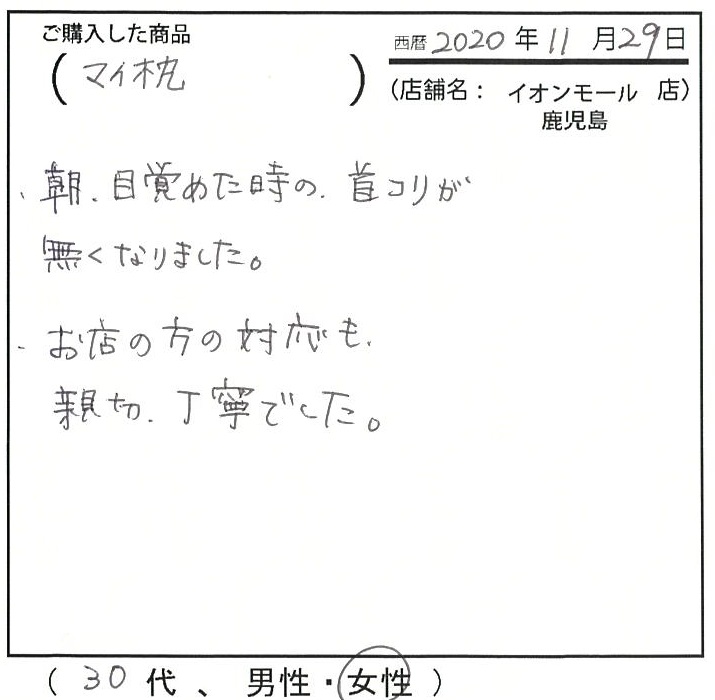 ご購入した商品
(マイ枕)
西暦 2020 年 11 月 29 日
(店舗名： イオンモール 店)
鹿児島
・朝、目覚めた時の、首コリが
無くなりました。
・お店の方の対応も、
親切、丁寧でした。
( 30 代 、 男性・女性 )